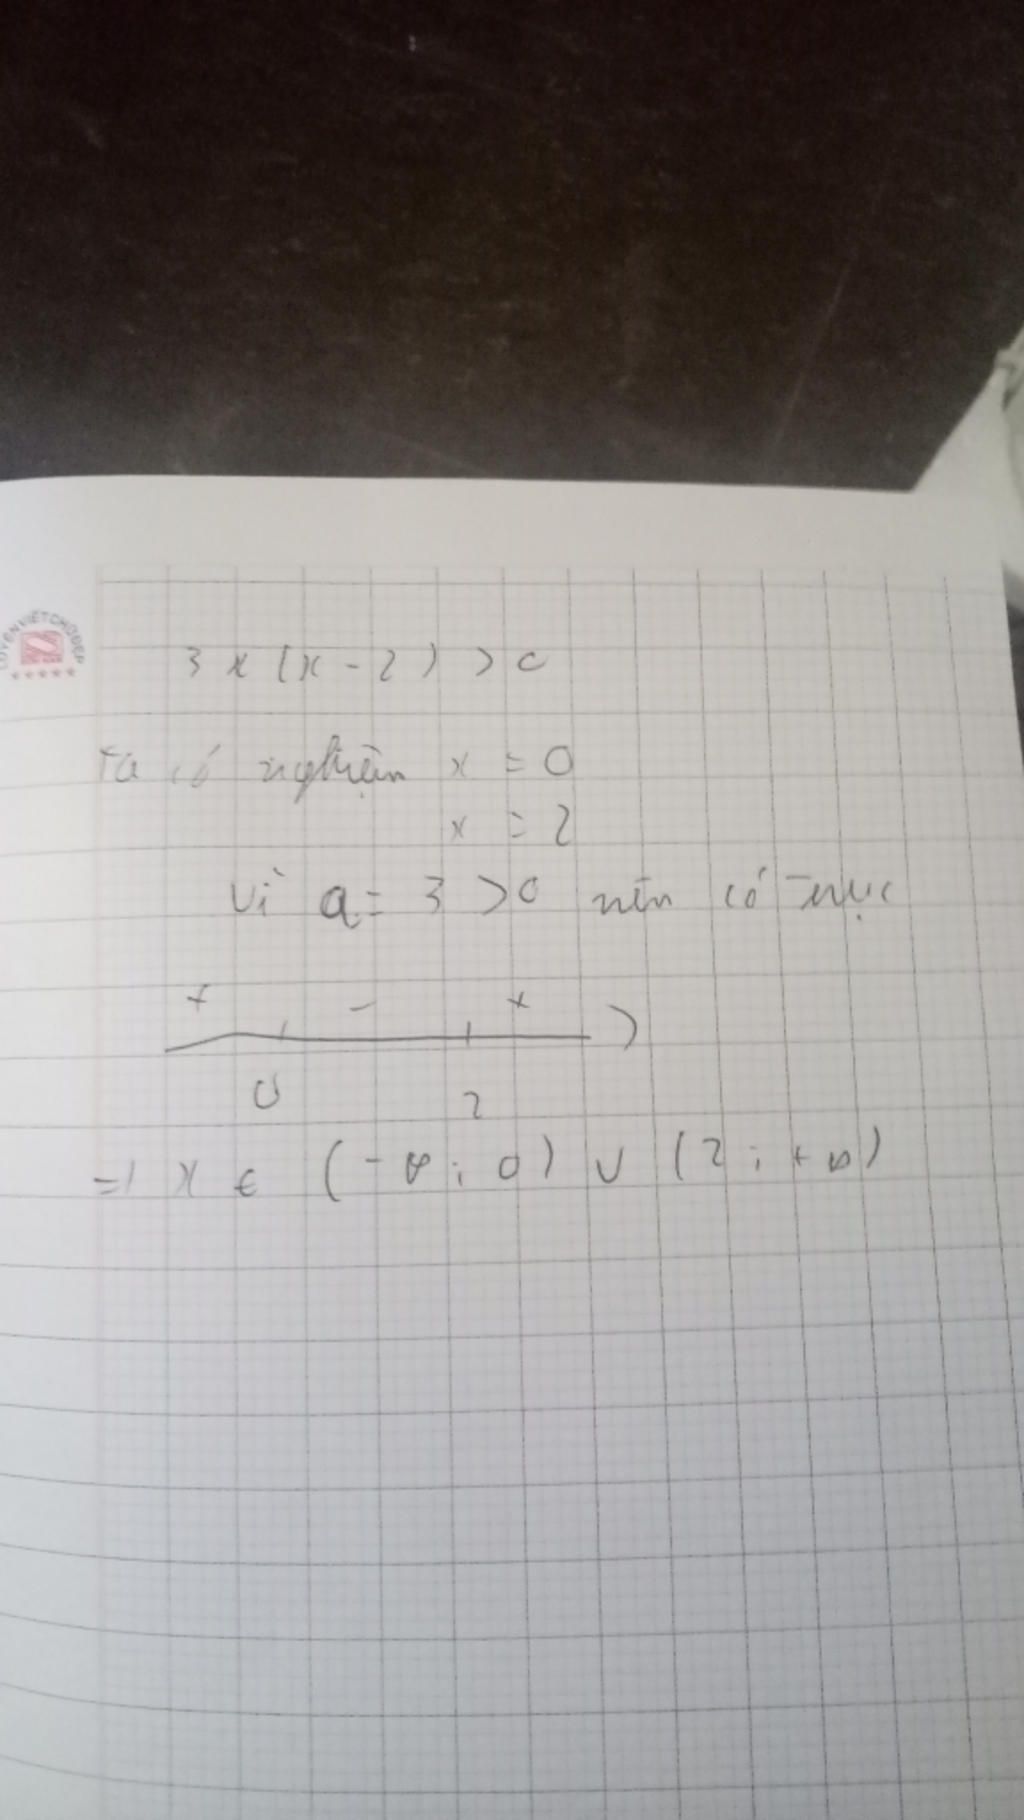 LUYỆN VIẾT CHỮ ĐẸP
3x(x-2) > 0
Ta có nghiệm x = 0
x = 2
Vì a = 3 > 0 nên có trục
+ - +
0 2
=) x ∈ (-∞; 0) ∪ (2; +∞)